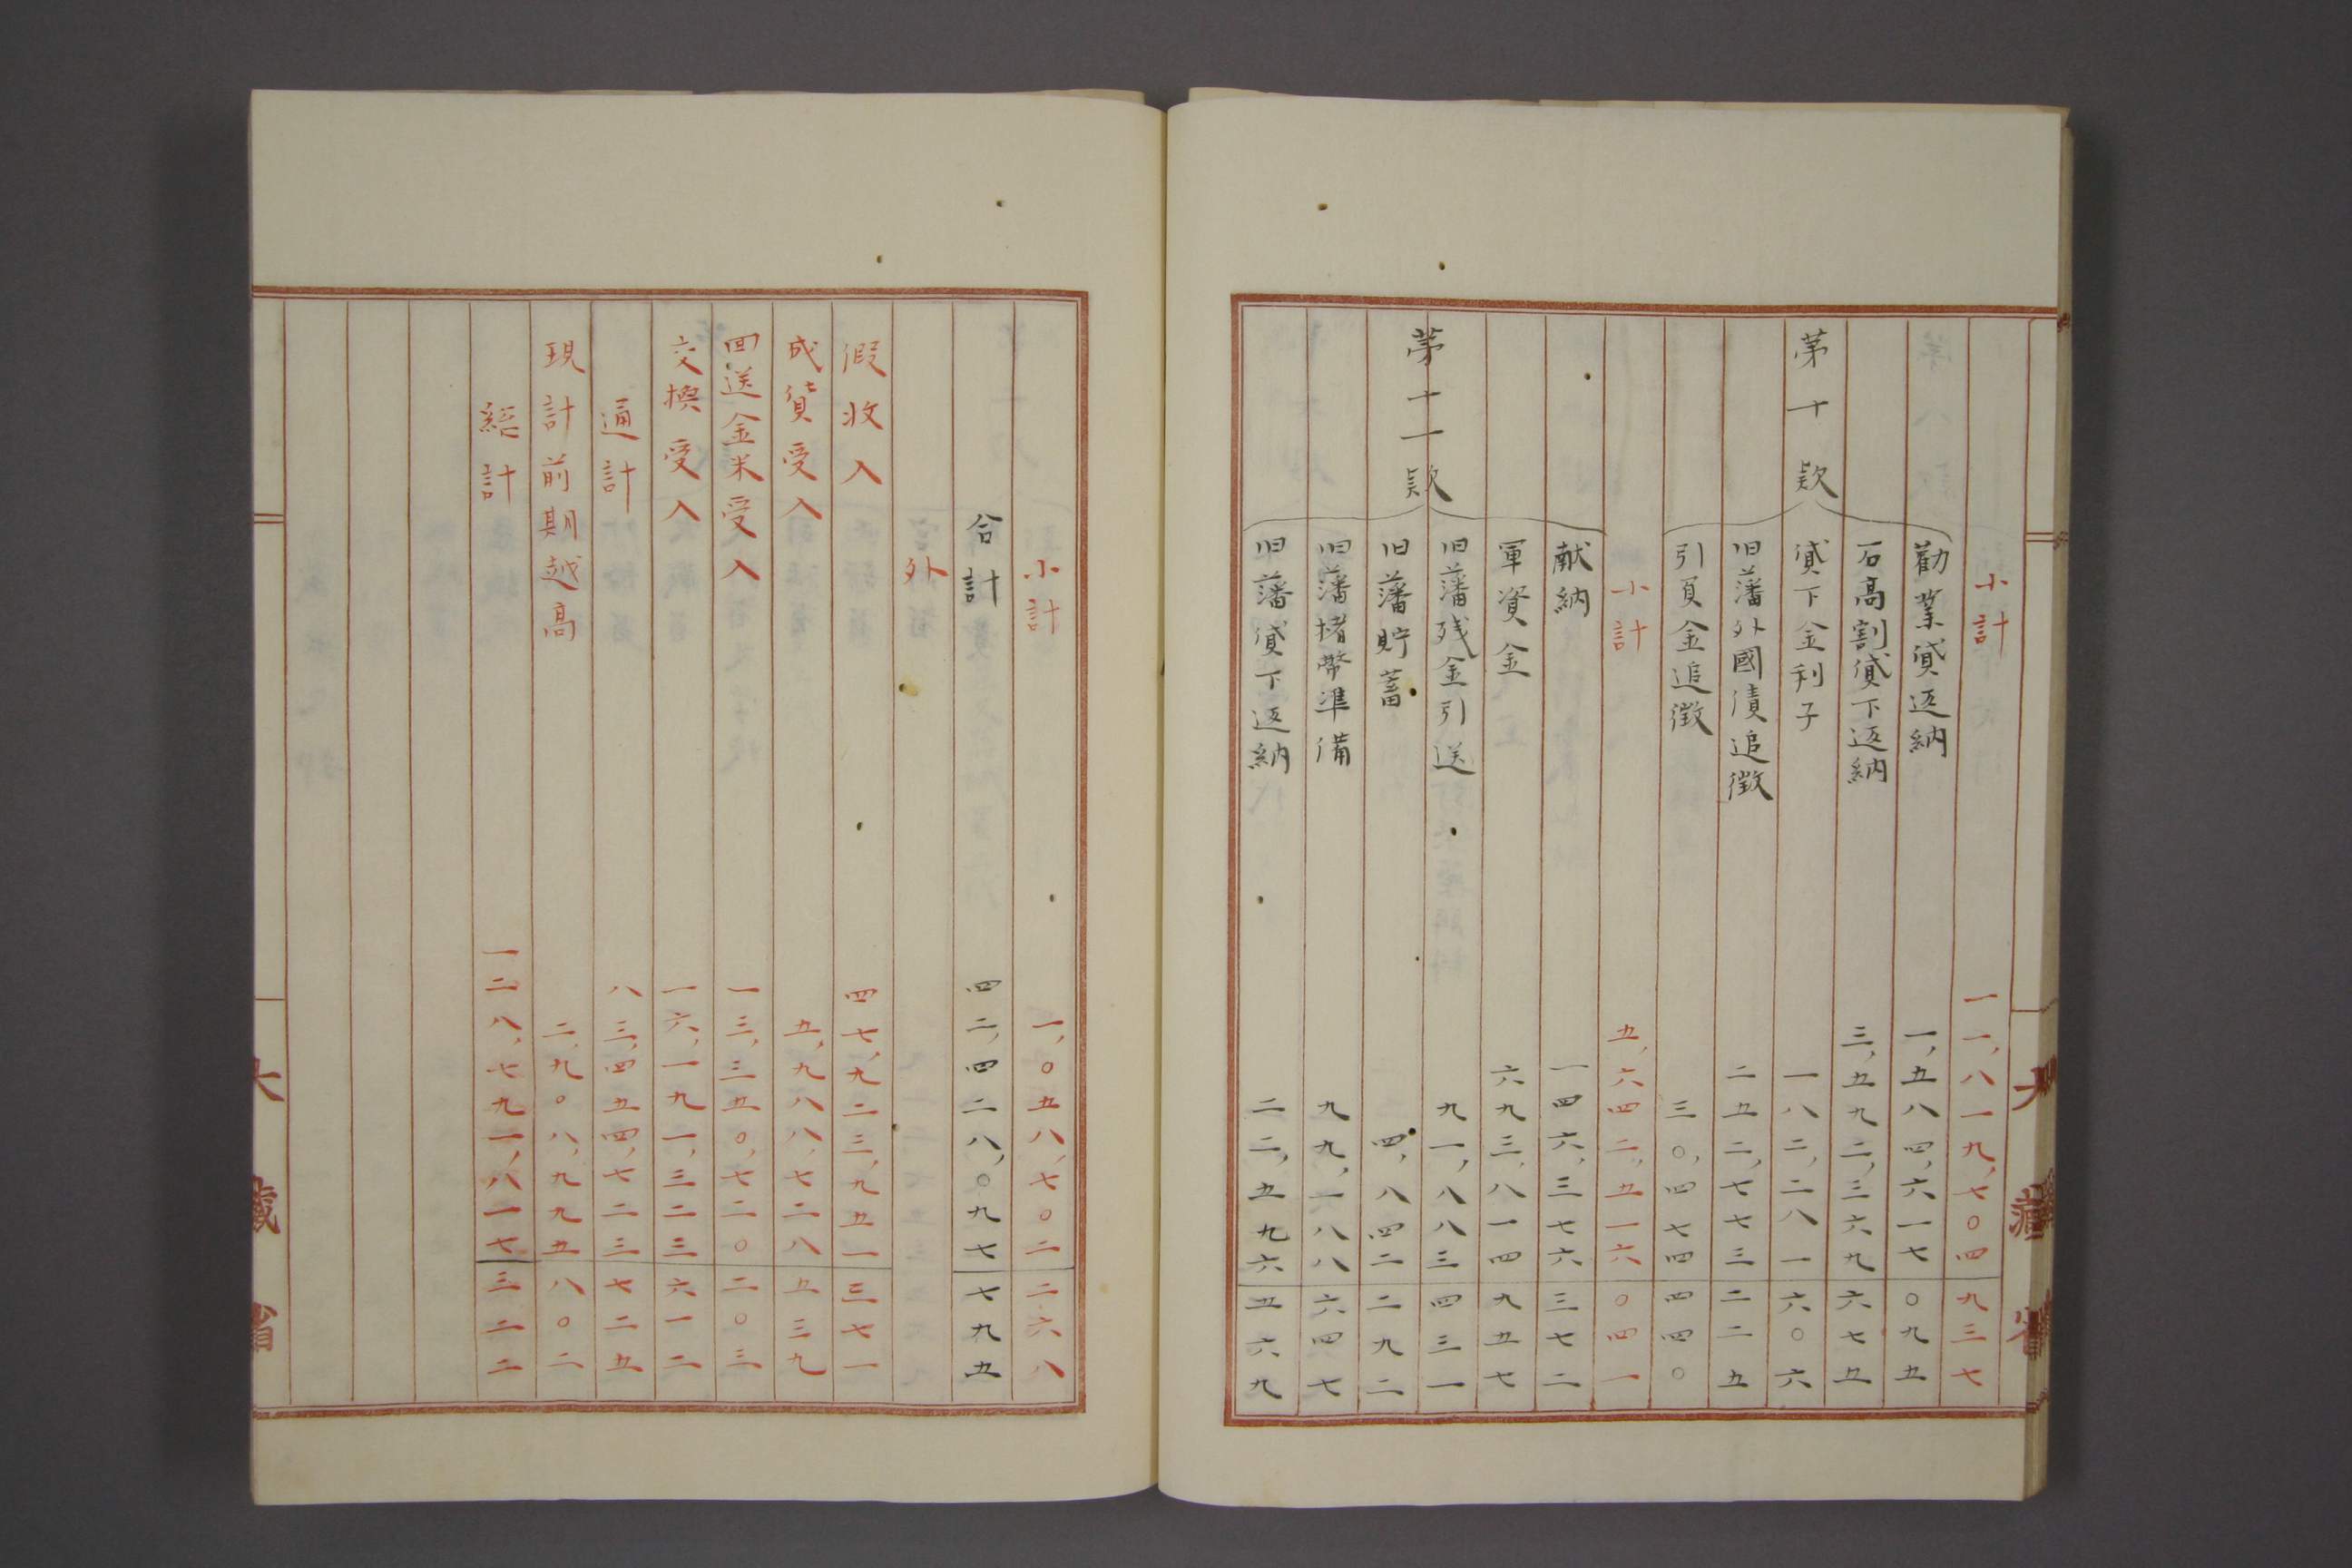 小計 一一,八一九,七〇四 九三七
第十款
勸業貸返納 一,五八四,六一七 〇九五
石高割貸下返納 三,五九二,三六九 六七五
貸下金利子 一八二,二八一 六〇六
旧藩外國債追徴 二五二,七七三 二二五
引負金追徴 三〇,四七四 四四〇
小計 五,六四二,五一六 〇四一
第十一款
献納 一四六,三七六 三七二
軍資金 六九三,八一四 九五七
旧藩残金引送 九一,八八三 四三一
旧藩貯蓄 四,八四二 二九二
旧藩楮幣準備 九九,一八八 六四七
旧藩貸下返納 二二,五九六 五六九
小計 一,〇五八,七〇二 二六八
合計 四二,四二八,〇九七 七九五
外
假收入 四七,九二三,九五一 三七一
成貨受入 五,九八八,七二八 五三九
回送金米受入 一三,三五〇,七二〇 二〇三
交換受入 一六,一九一,三二三 六一二
通計 八三,四五四,七二三 七二五
現計前期越高 二,九〇八,九九五 八〇二
緫計 一二八,七九一,八一七 三二二
大藏省